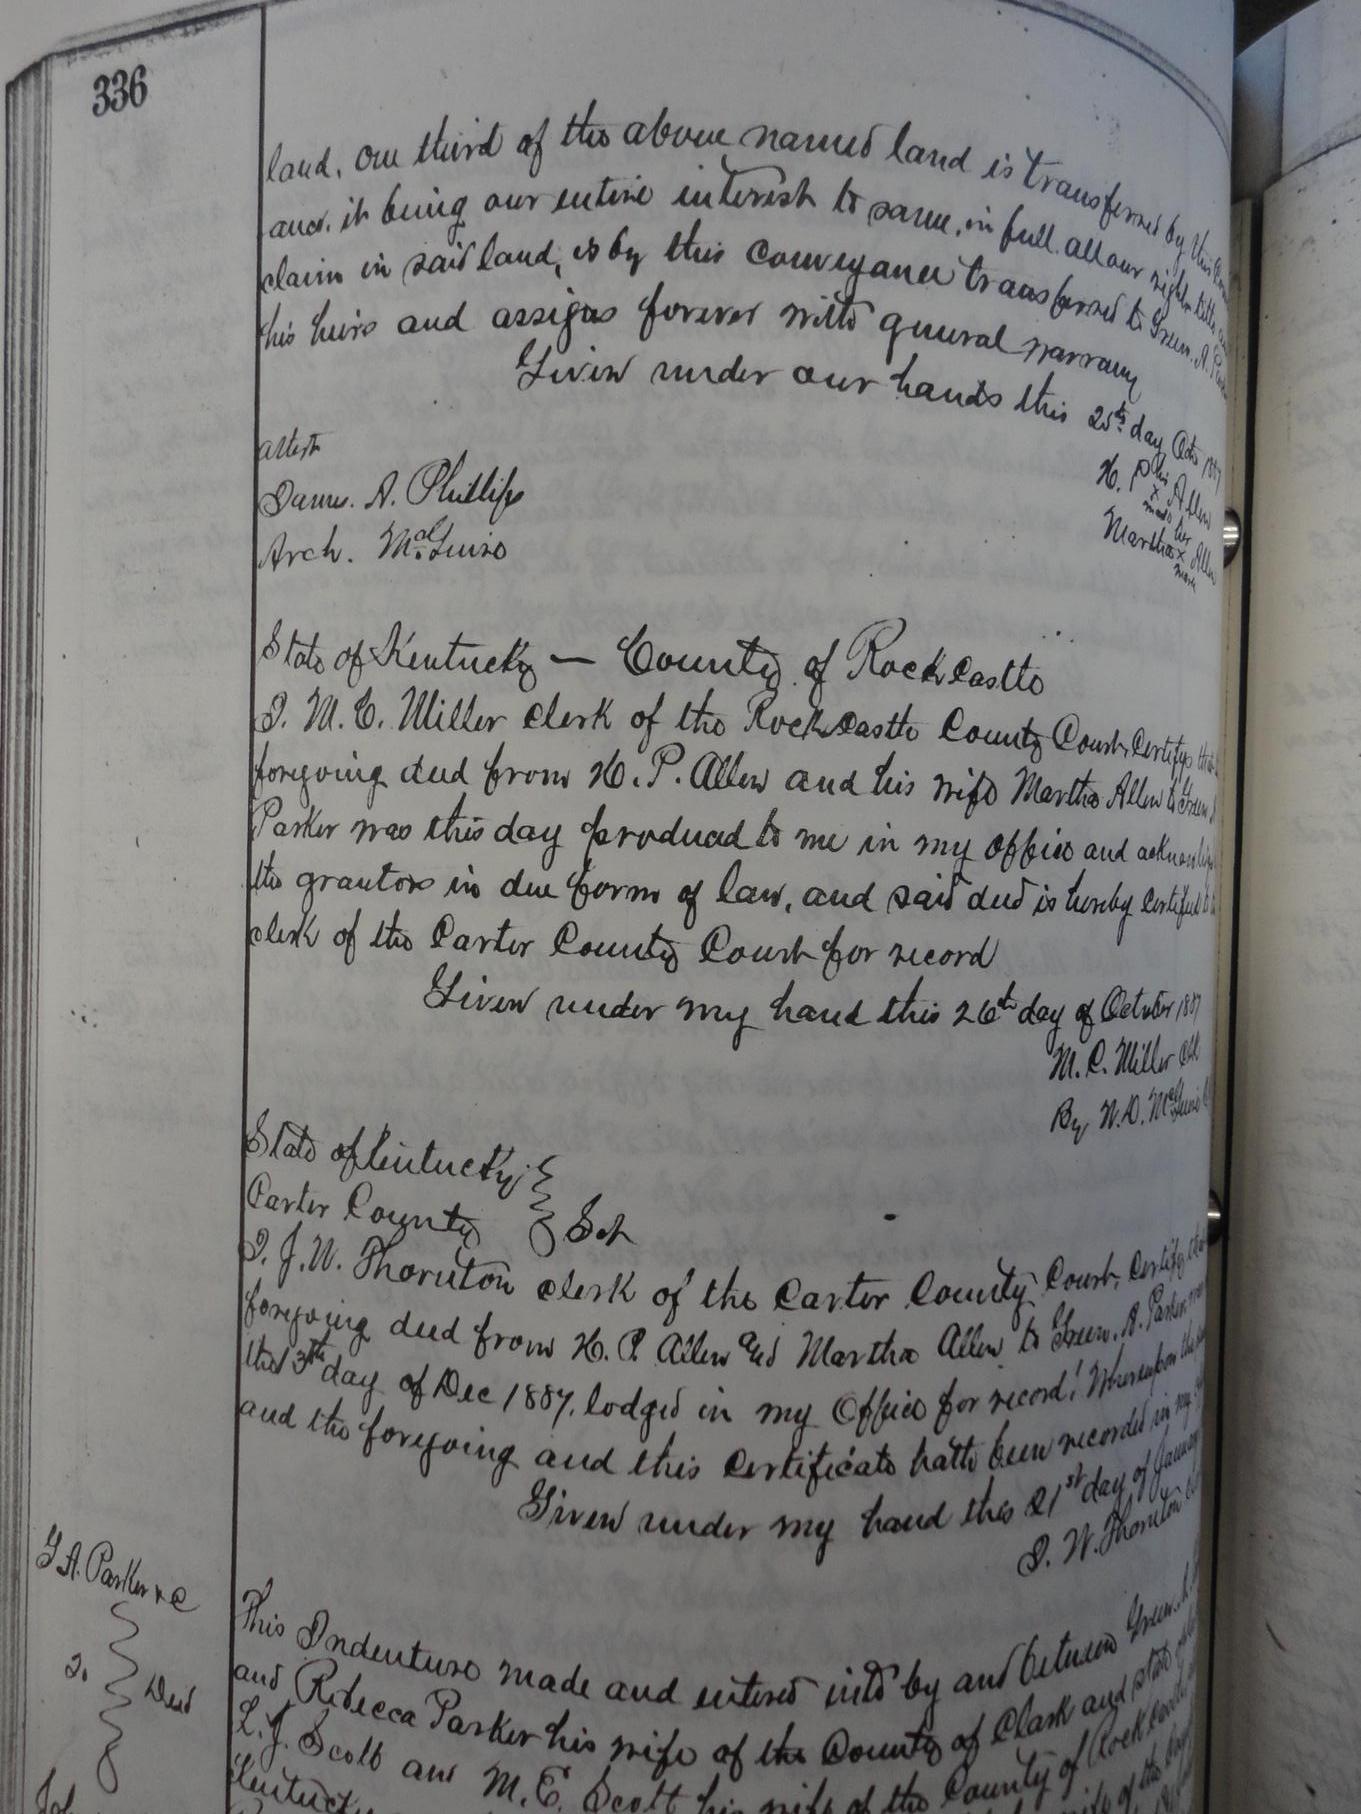 336
land, one third of the above named land is transferred by this
and it being our entire interest to same, in full all our right title
claim in said land, is by this Conveyance transferred to Green. A.
his heirs and assigns forever with general warrany
Given under our hands this 25th day Octo 1887
attest
H. P. his x mark Allen
James. A. Phillips
Martha her x mark Allen
Arch. McGuire
State of Kentucky — County of Rockcastle
I. M. C. Miller clerk of the Rockcastle County Court, Certify that
foregoing deed from H. P. Allen and his wife Martha Allen to Green
Parker was this day produced to me in my office and
the grantors in due form of law, and said deed is hereby certified to
clerk of the Carter County Court for record
Given under my hand this 26th day of October 1887
M. C. Miller Clk
By W. D. McGuire
State of Kentucky
Carter County } Sct
I. J. W. Thornton clerk of the Carter County Court, Certify that
foregoing deed from H. P. Allen and Martha Allen to Green. A. Parker, was
the 3th day of Dec 1887, lodged in my Office for record! Whereupon the
and the foregoing and this Certificate hath been recorded in my
Given under my hand this 21st day of January
J. W. Thornton
G A. Parker & C
2. Deed
This Indenture made and entered into by and between Green. A.
and Rebecca Parker his wife of the County of Clark and State
L. J. Scott and M. E. Scott his wife of the County of Rockcastle
Kentucky